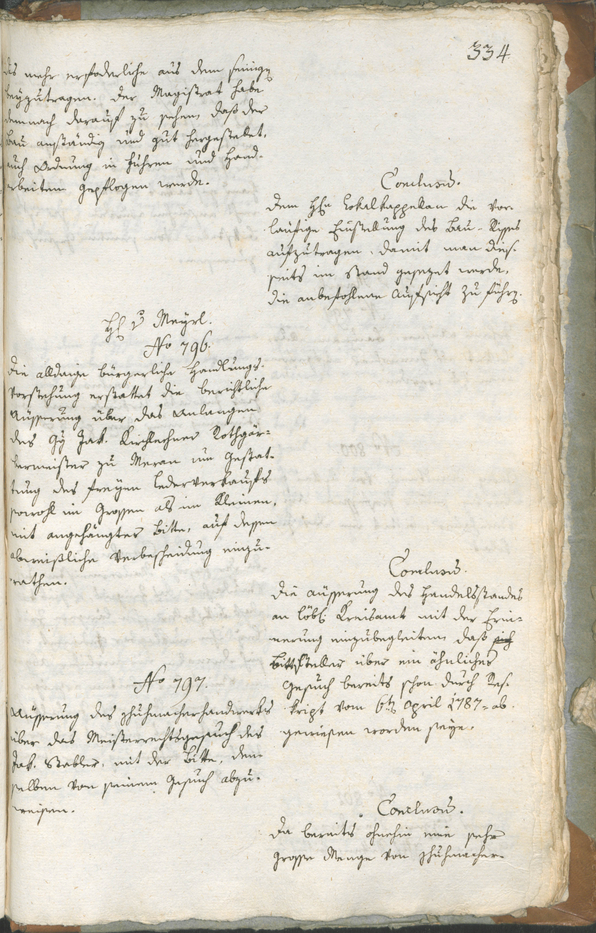 334
das mehr erforderliche aus dem seinigen
beyzutragen. Der Magistrat habe
demnach darauf zu sehen, daß der
Bau anständig und gut hergestellet,
auch Ordnung in Führen und Hand-
arbeiten gepflogen werde.
Conclusum.
Dem Hh Lokalkappellan die vor-
läufige Einstellung des Bau-Rises
aufzutragen, damit man dies-
seits im Stand gesezet werde,
die anbefohlene Aufsicht zu führen.
Hh v Meyrl.
No 796.
Die alldaige bürgerliche Handlungs-
Vorstehung erstattet die berichtliche
Äusserung über das Anlangen
des Jak. Kirchlechner Rothgär-
bermeister zu Meran um Gestat-
tung des freyen Lederverkaufs
sowohl im Grossen als im Kleinen,
mit angehängter Bitte, auf dessen
abweißliche Verbescheidung einzu-
rathen.
Conclusum.
Die äusserung des Handelsstandes
an löbl. Kreisamt mit der Erin-
nerung einzubegleiten, daß sich
Bittsteller über ein ähnliches
Gesuch bereits schon durch Res-
kript vom 6ten April 1787 ab-
gewiesen worden seye.
No 797.
Äusserung des Schuhmacherhandwerks
über das Meisterrechtsgesuch des
Jak. Stabler, mit der Bitte, den-
selben von seinem Gesuch abzu-
weisen.
Conclusum.
Da bereits ohnehin eine sehr
grosse Menge von Schuhmacher-